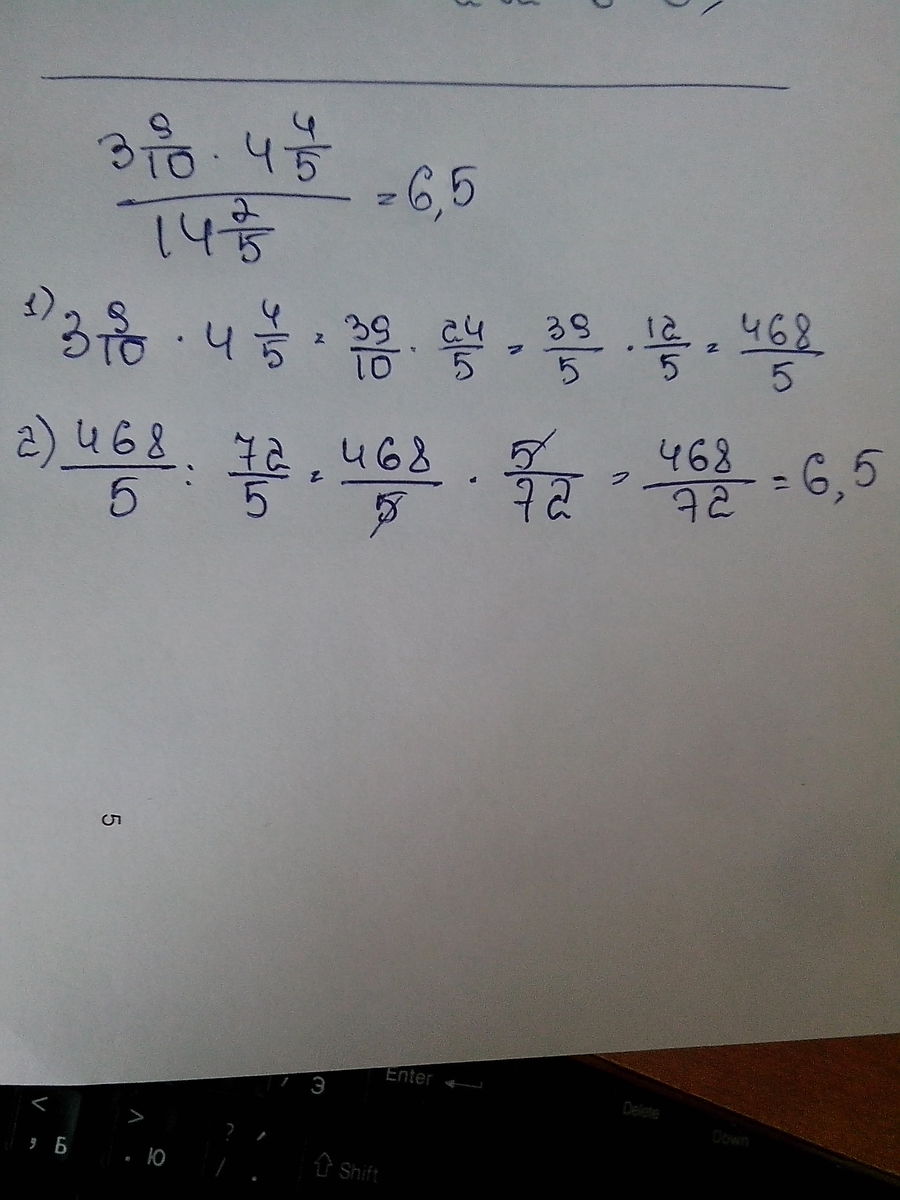 3 9/10 · 4 4/5 / 14 2/5 = 6,5
1) 3 9/10 · 4 4/5 = 39/10 · 24/5 = 39/5 · 12/5 = 468/5
2) 468/5 : 72/5 = 468/5 · 5/72 = 468/72 = 6,5
5
Э Enter
< , Б > . Ю ? / , . Shift Delete Down